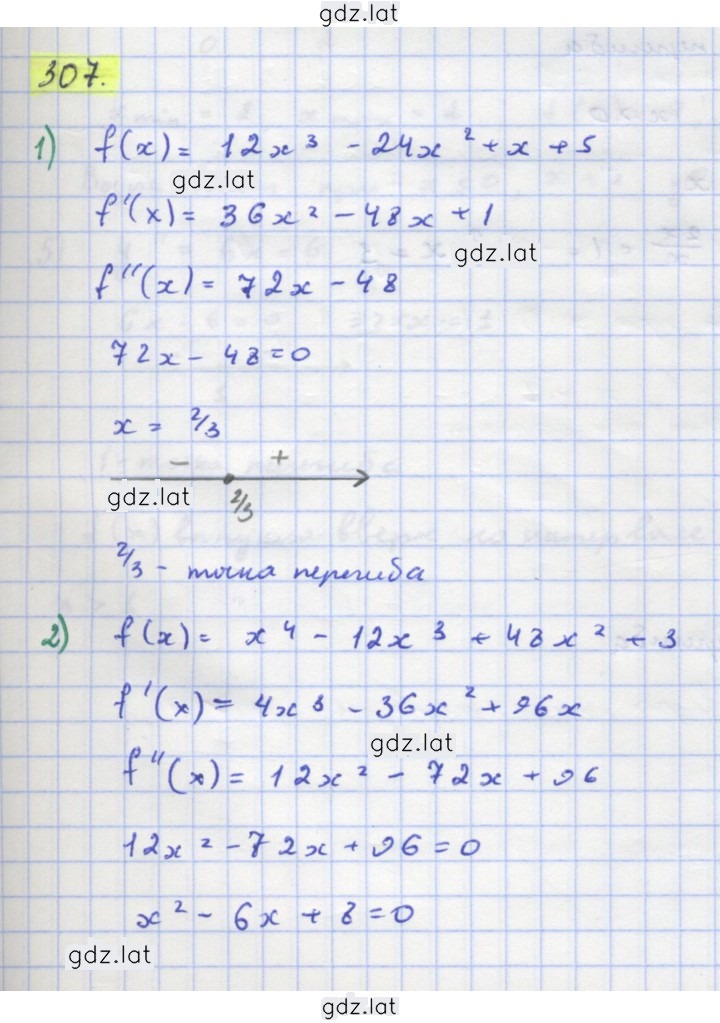 gdz.lat
307.
1) f(x) = 12x³ - 24x² + x + 5
gdz.lat
f'(x) = 36x² - 48x + 1
gdz.lat
f''(x) = 72x - 48
72x - 48 = 0
x = 2/3
- +
gdz.lat
2/3
2/3 - точка перегиба
2) f(x) = x⁴ - 12x³ + 48x² + 3
f'(x) = 4x³ - 36x² + 96x
gdz.lat
f''(x) = 12x² - 72x + 96
12x² - 72x + 96 = 0
x² - 6x + 8 = 0
gdz.lat
gdz.lat